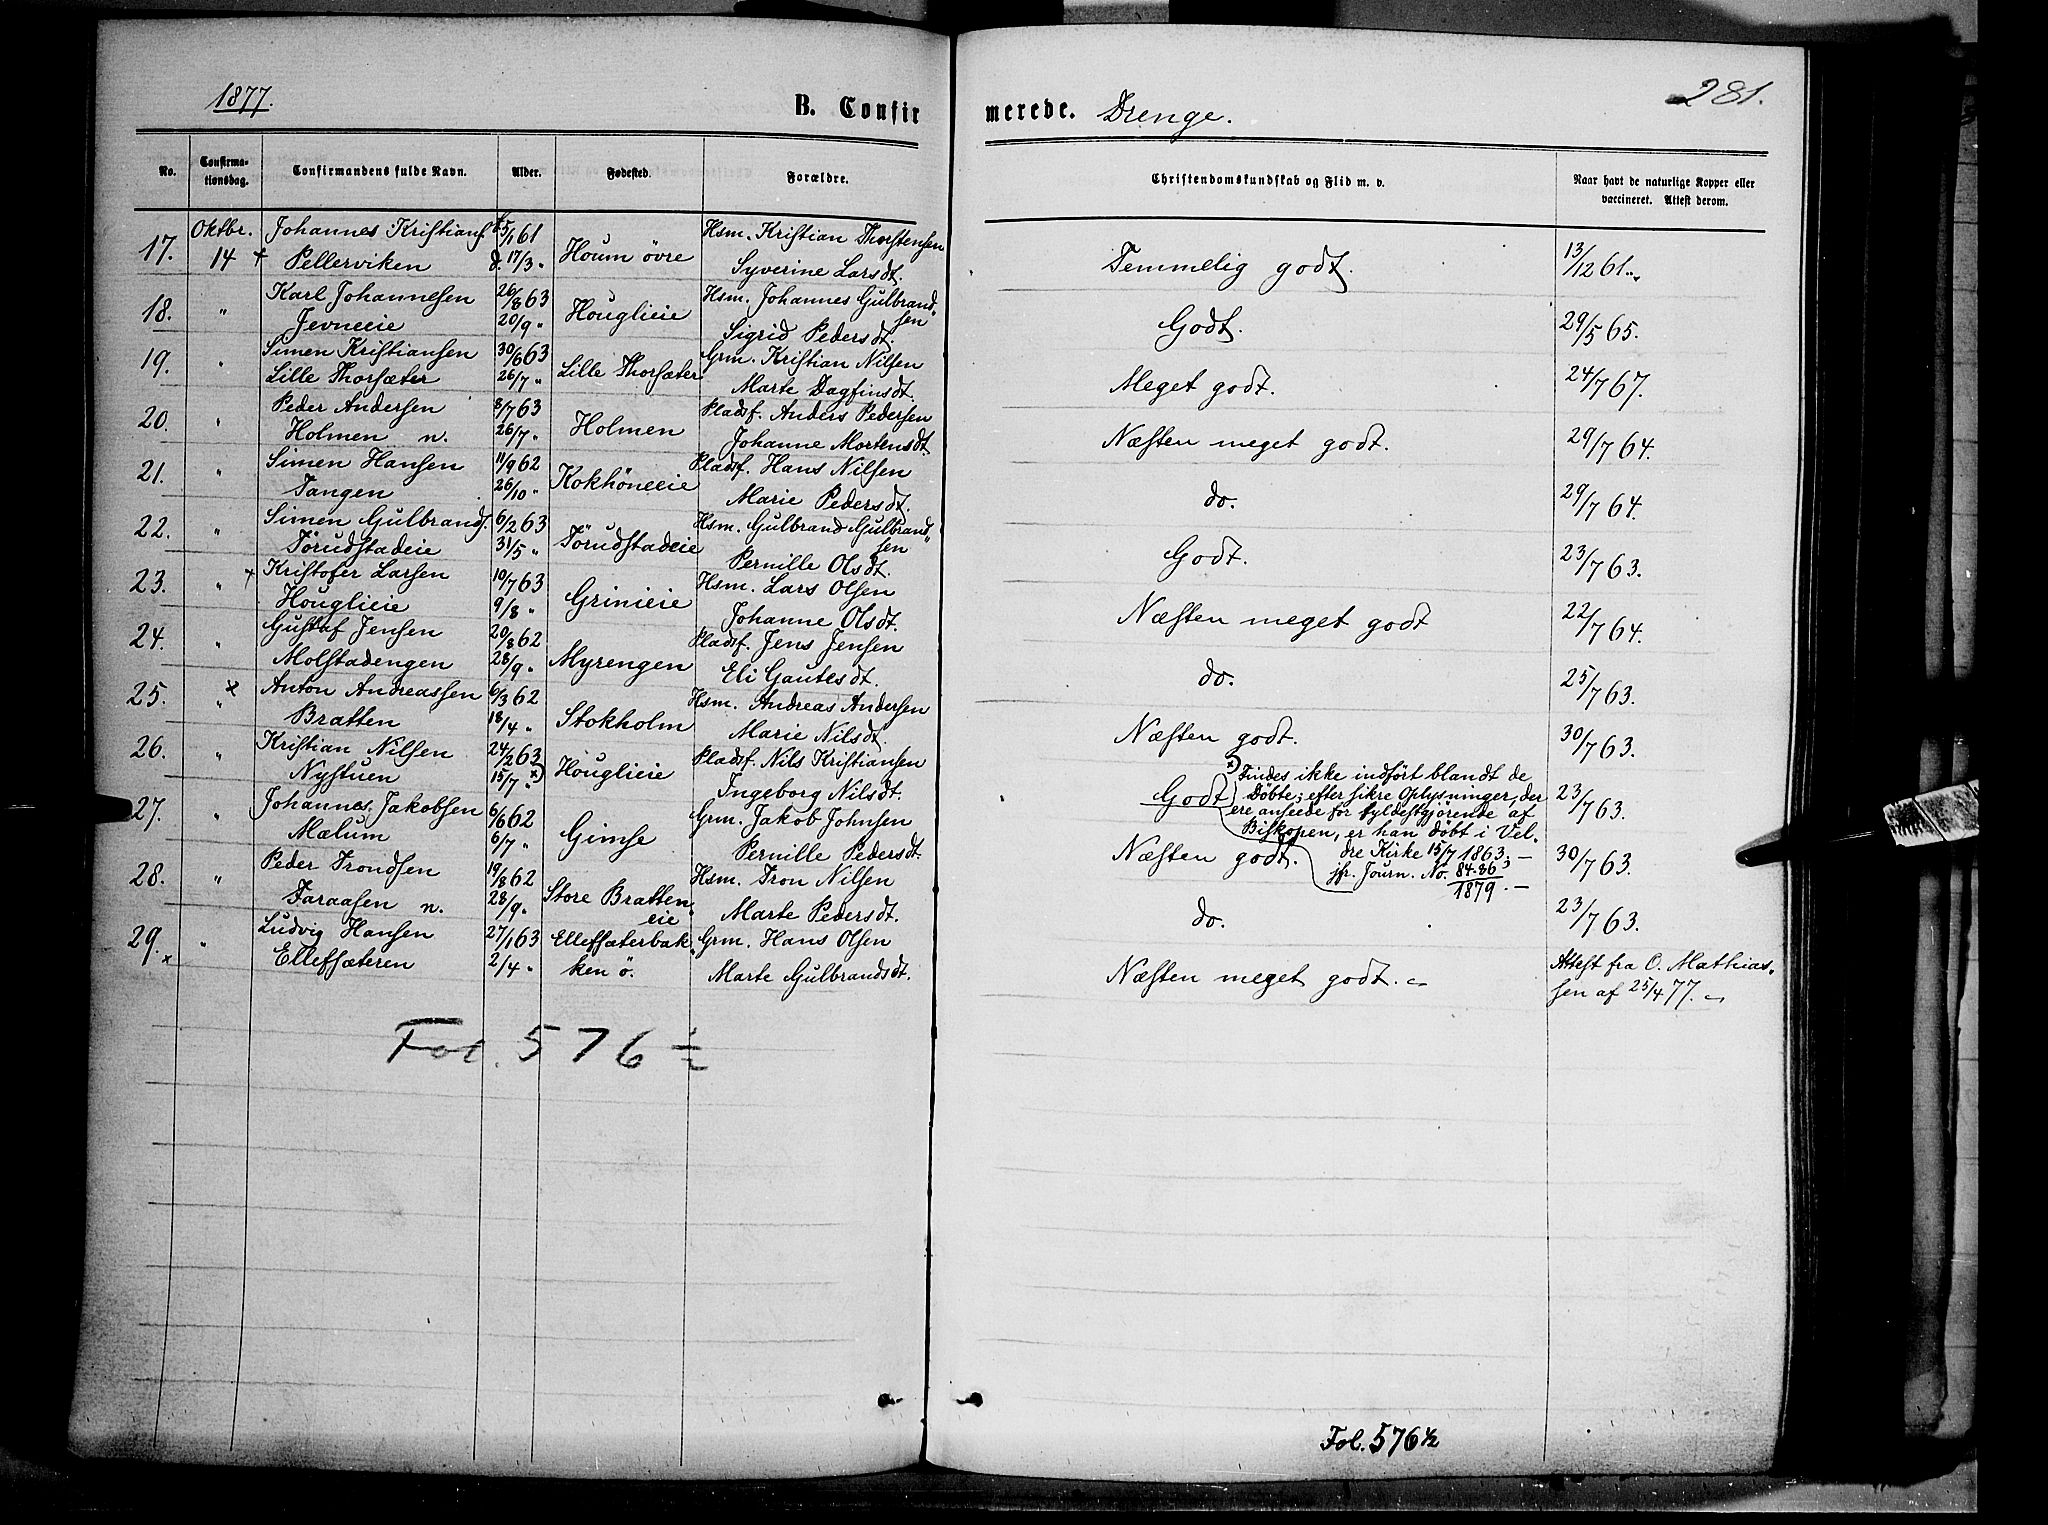 1877.
B. Confirmerede. Drenge.
281.
No. | Confirmationsdag. | Confirmandens fulde Navn. | Alder. | Fødested. | Forældre. | Christendomskundskab og Flid m. v. | Naar havt de naturlige Kopper eller vaccineret. Attest derom.
17. | Oktbr. 14 + | Johannes Kristians. | 5/1 61 | Houm övre | Hsm. Kristian Thorstensen | Temmelig godt. | 13/12 61.
Pellerviken | d. 17/3 " | Syverine Larsdt.
18. | " | Karl Johannesen | 26/8 63 | Houglieie | Hsm. Johannes Gulbrandsen | Godt. | 29/5 65.
Jevneeie | 20/9 " | Sigrid Pedersdt.
19. | " | Simen Kristiansen | 30/6 63 | Lille Thorsæter | Grm. Kristian Nilsen | Meget godt. | 24/7 67.
Lille Thorsæter | 26/7 " | Marte Dagfinsdt.
20. | " | Peder Andersen | 8/7 63 | Holmen | Pladsf. Anders Pedersen | Næsten meget godt. | 29/7 64.
Holmen n. | 26/7 " | Johanne Mortensdt
21. | " | Simen Hansen | 11/9 62 | Kokhöneeie | Pladsf. Hans Nilsen | do. | 29/7 64.
Tangen | 26/10 " | Marie Pedersdt.
22. | " | Simen Gulbrands. | 6/2 63 | Törudstadeie | Hsm. Gulbrand Gulbrandsen | Godt. | 23/7 63.
Törudstadeie | 31/5 " | Pernille Olsdt.
23. | " + | Kristofer Larsen | 10/7 63 | Grinieie | Hsm. Lars Olsen | Næsten meget godt | 22/7 64.
Houglieie | 9/8 " | Johanne Olsdt.
24. | " | Gustaf Jensen | 20/8 62 | Myrengen | Pladsf. Jens Jensen | do. | 25/7 63.
Molstadengen | 28/9 " | Eli Gautesdt.
25. | " x | Anton Andreassen | 6/3 62 | Stokholm | Hsm. Andreas Andersen | Næsten godt. | 30/7 63.
Bratten | 18/4 " | Marie Nilsdt.
26. | " | Kristian Nilsen | 24/2 63 | Houglieie | Pladsf. Nils Kristiansen | Godt | 23/7 63.
Nystuen | 15/7 " x) | Ingeborg Nilsdt.
x) Findes ikke indfört blandt de
Döbte; efter sikre Oplysninger, der
ere anseede for fyldestgjörende af
Biskopen, er han döbt i Vel-
dre Kirke 15/7 1863. —
jfr. Journ. No. 84.86
1879. —
27. | " | Johannes Jakobsen | 6/6 62 | Gimse | Grm. Jakob Johnsen | Næsten godt. | 30/7 63.
Mælum | 6/7 " | Pernille Pedersdt.
28. | " | Peder Trondsen | 19/8 62 | Store Bratteneie | Hsm. Tron Nilsen | do. | 23/7 63.
Taraasen n. | 28/9 " | Marte Pedersdt.
29. x | " | Ludvig Hansen | 27/1 63 | Ellefsæterbakken ö. | Grm. Hans Olsen | Næsten meget godt. | Attest fra O. Mathiassen af 25/4 77.
Ellefsæteren | 2/4 " | Marte Gulbrandsdt.
Fol. 576 1/2
Fol. 576 1/2